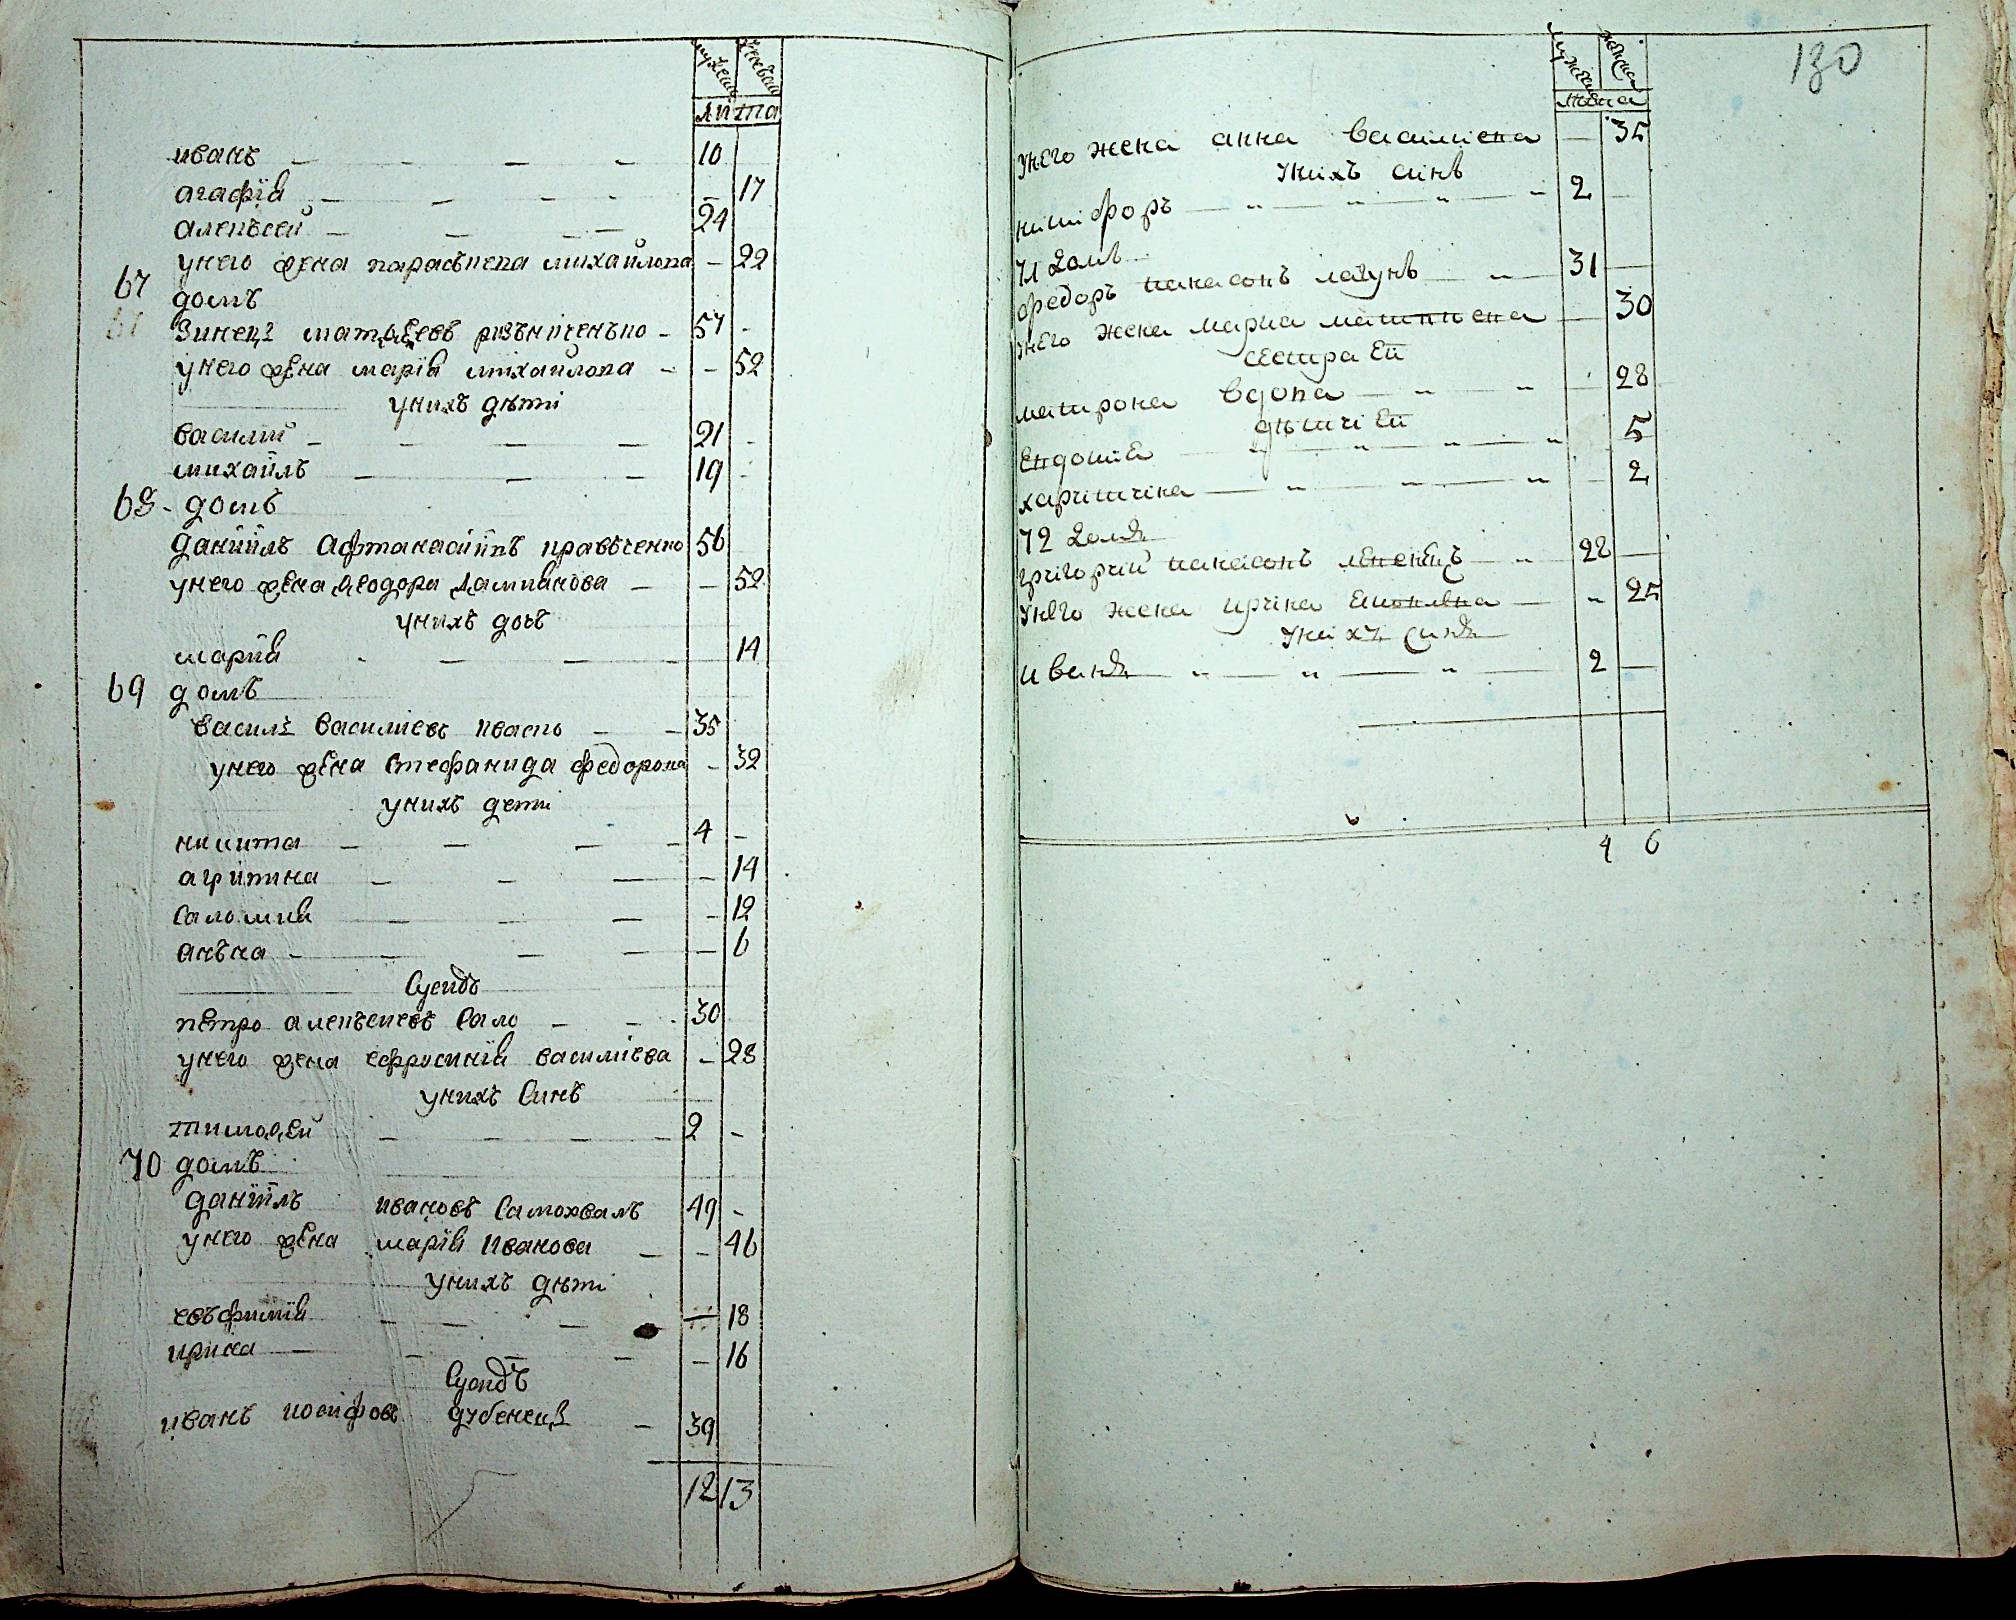 мужеска женска
лѣта
иванъ — — — — 10
агафія — — — — 17
алексей — — — 24
унего жена параскиева михайлова — 22
67 домъ
Зинецъ матѳеевъ — 57 -
унего жена марія михайлова — — 52
унихъ дѣти
василий — — — — 21 -
михаилъ — — — 19 -
68 - домъ
даніилъ Афтанасіивъ кравченко 56
унего жена Ѳеодора — — 52
унихъ дочъ
марія - — — — 14
69 домъ
василъ василиевъ ивасъ — — 35
унего жена Стефанида федорова — 32
унихъ дети
никита — — — — 4 —
агрипина — — — — 14
Саломия — — — — 12
анъна — — — — — 6
Сусидъ
петро алексѣевъ Сало — — - 30
унего жена ефросинія василиева — 28
унихъ Синъ
тимоѳей — — — — 2 -
70 домъ
даніилъ ивановъ Самохвалъ 49 -
унего жена марія Иванова — — 46
унихъ дѣти
евъфимія — — — — 18
ирина — — — — — 16
Сусидъ
иванъ иосифовъ дубенецъ — 39
12 13
130
мужеска женска
лѣта
Унего жена анна василиева — 35
Унихъ синъ
никифоръ — „ — „ — „ — „ 2 —
71 домъ
федоръ панасовъ — „ — 31 —
Унего жена мариа — 30
сестра ей
матрона вдова — „ — „ — 28
дѣти ей
Евдокия — „ — „ — „ — „ 5
харитина — „ — „ — „ — 2
72 домъ
григорий панасовъ — „ 22 —
Унего жена ирина — „ 25
Унихъ синъ
иванъ „ — „ — „ — 2 —
4 6